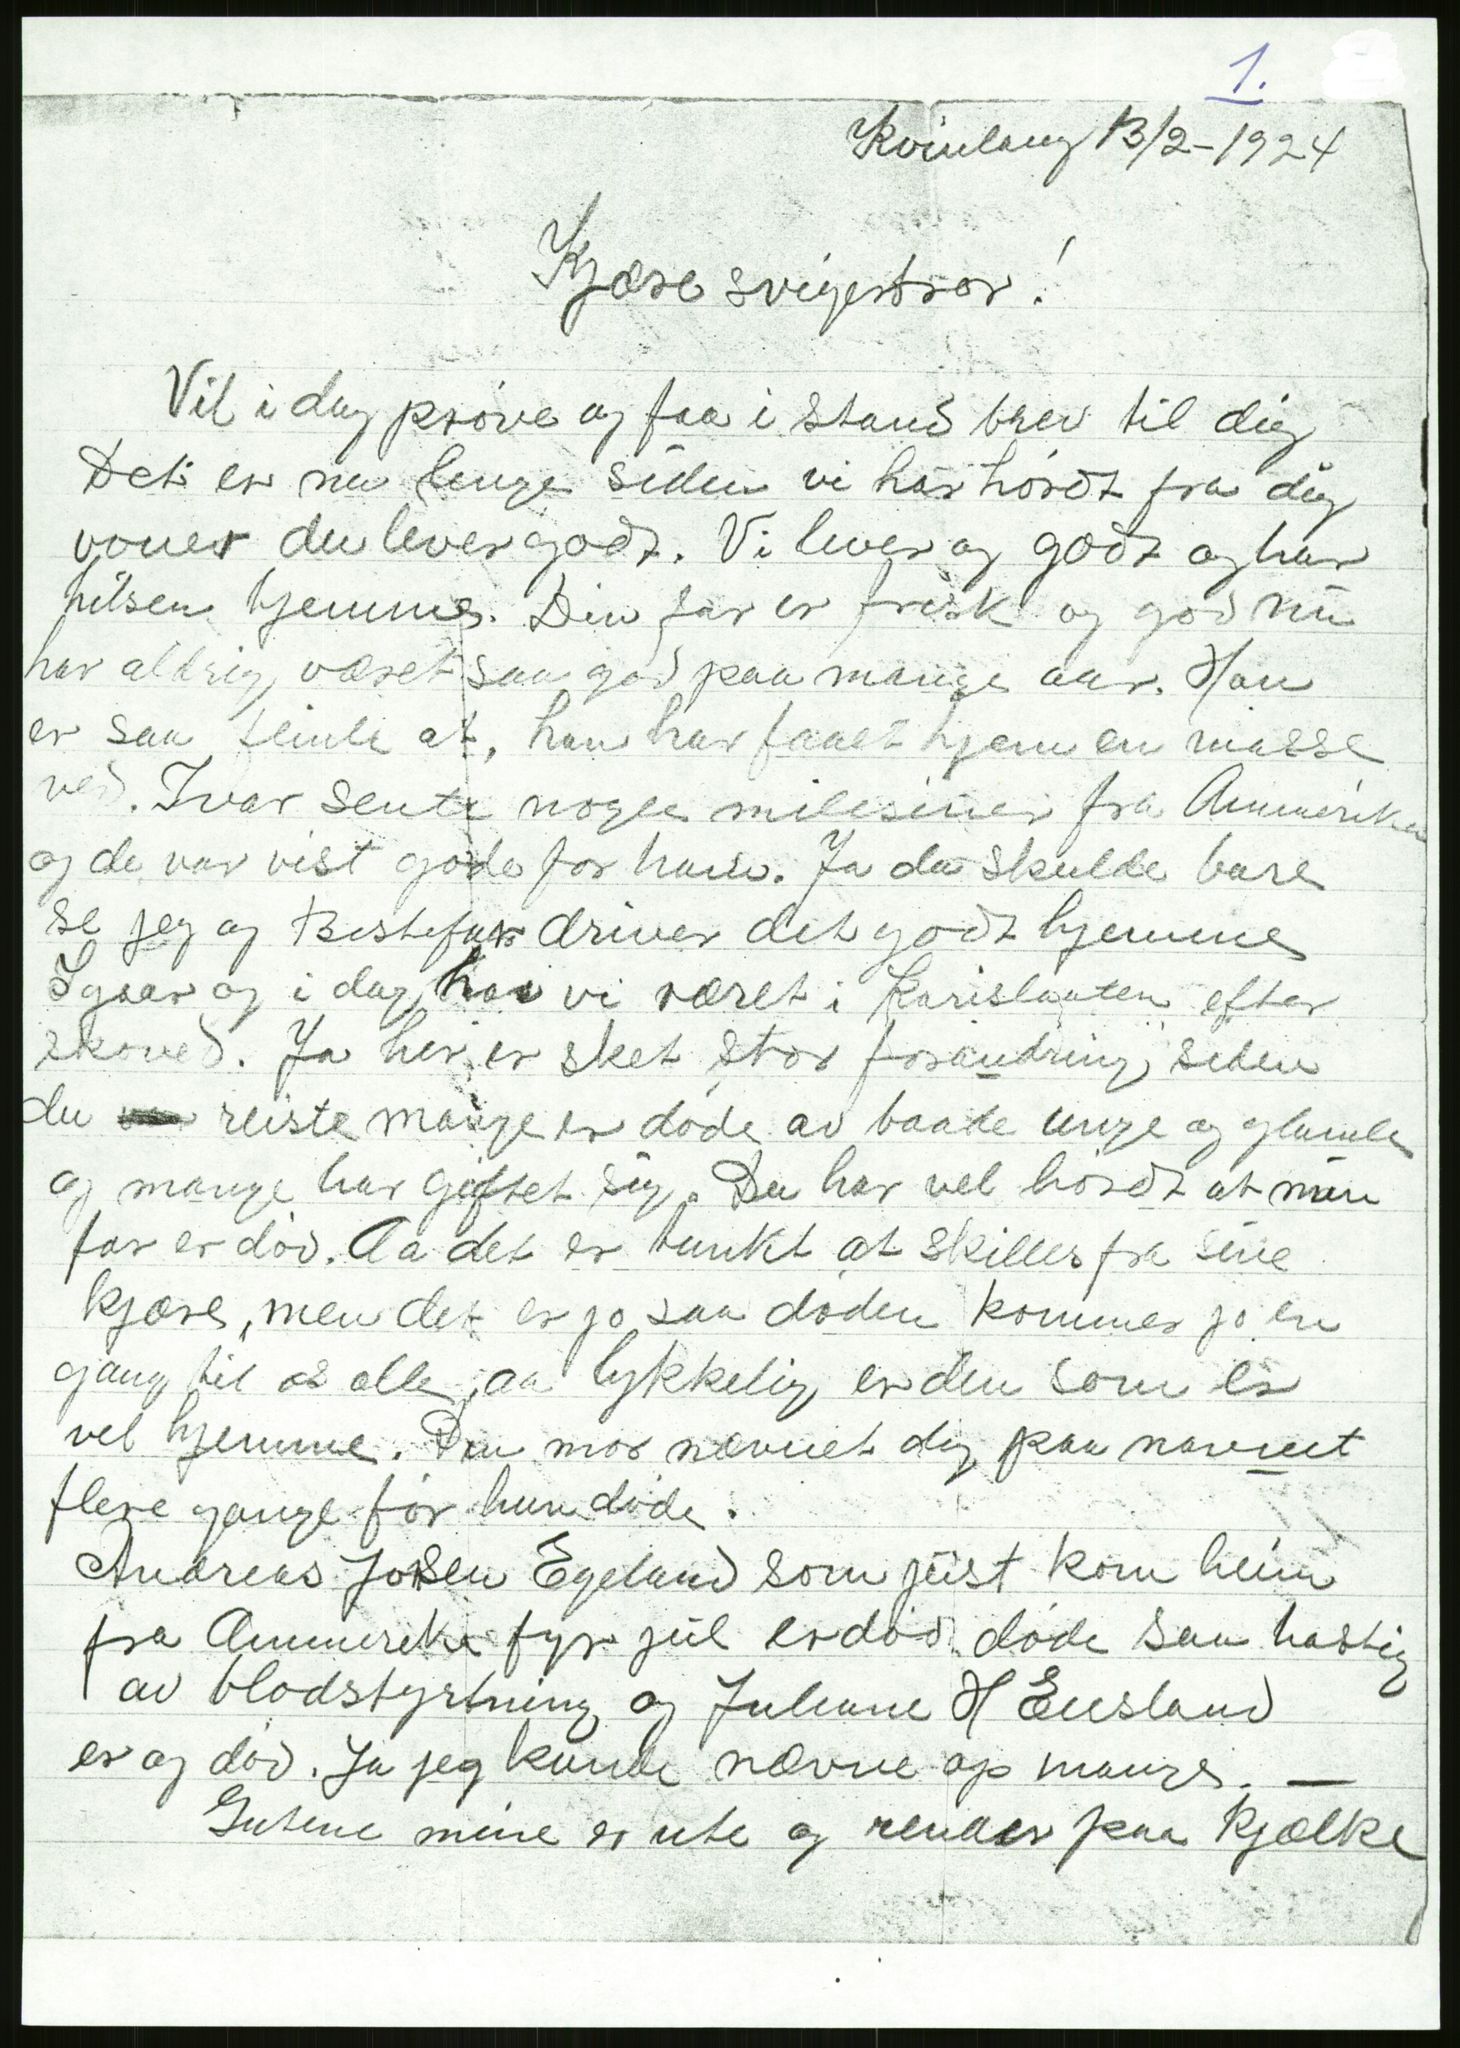 1.
Kvinlaug 13/2-1924
Kjære svigerbror!
Vil i dag prøve og faa i stand brev til dig
Det er nu lenge siden vi har hørdt fra dig
voner du lever godt. Vi lever og godt og har
hilsen hjemme. Din far er frisk og god nu
har aldrig været saa god paa mange aar. Han
er saa flinke at, han har faaet hjem en masse
ved. Ivar sente nogle milesiner fra Ammerika
og de var vist gode for ham. Ja du skulde bare
se jeg og Bestefar driver det godt hjemme
Igaar og i dag har vi været i Karislaaten efter
skoved. Ja her er sket stor forandring siden
du reiste mange er døde av baade unge og glamle
og mange har giftet sig. Du har vel hørdt at min
far er død. Aa det er tunkt at skilles fra sine
kjære, men det er jo saa døden kommer jo en
gang til os alle, aa lykkelig er den som er
vel hjemme. Din mor nævnet dig paa navnet
flere gange før hun døde.
Andreas Josen Egeland som just kom heim
fra Ammereka fyr jul er død døde saa hastig
av blodstyrtning og Juliane H Eiesland
er og død. Ja jeg kunde nævne op mange. —
Gutene mine er ute og renner paa kjælke